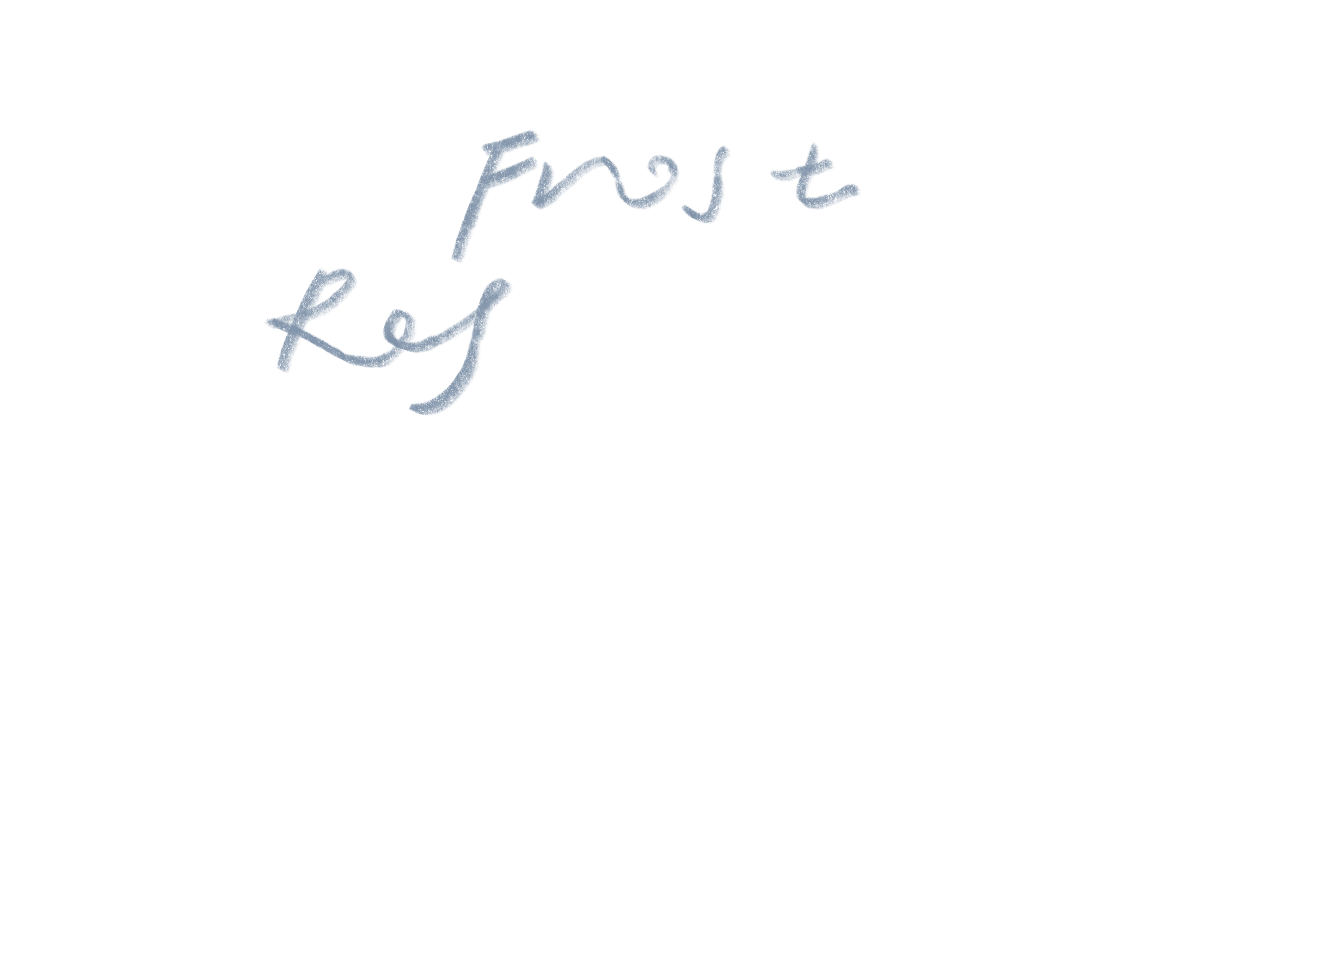 Frost
Res